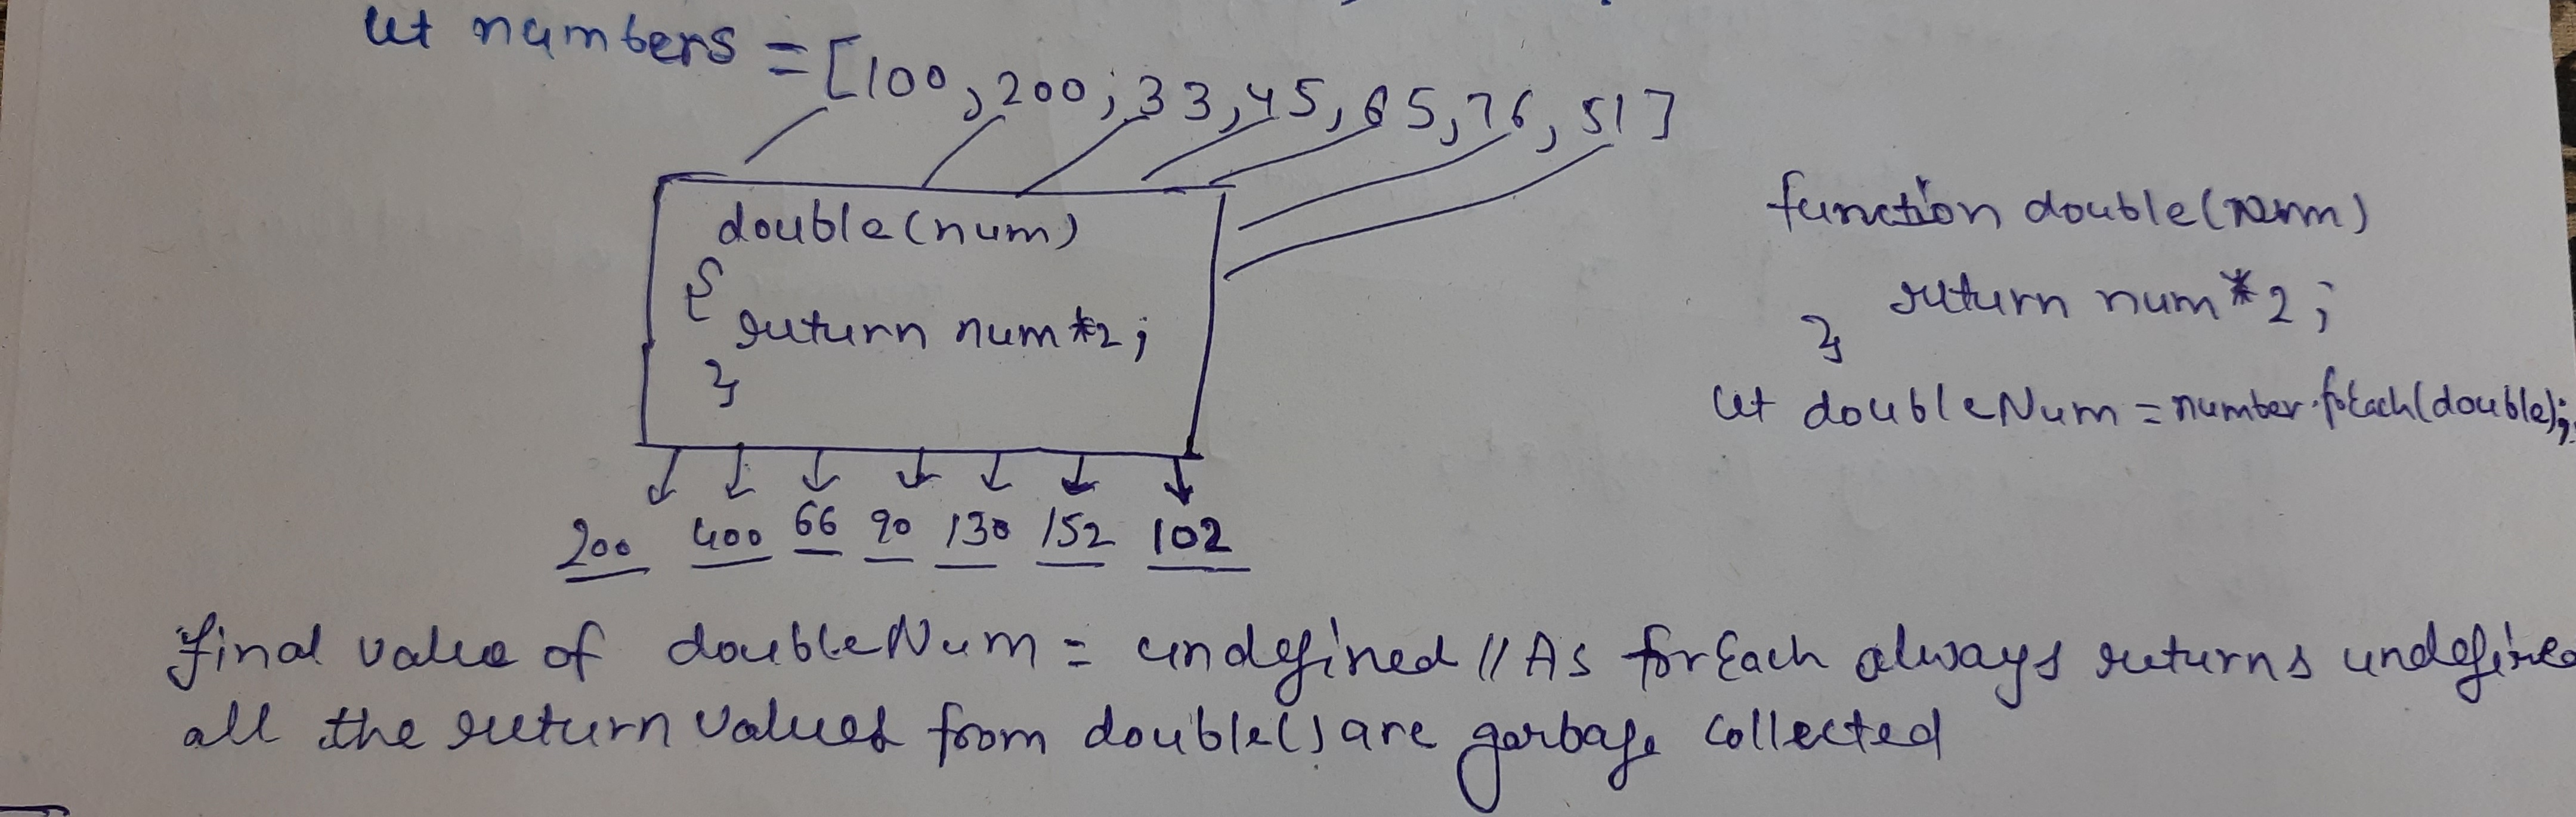 let numbers = [100, 200, 33, 45, 65, 76, 51]
double(num)
{
return num*2;
}
200 400 66 90 130 152 102
function double(num)
return num*2;
}
let doubleNum = number.forEach(double);
final value of doubleNum = undefined // As forEach always returns undefined
all the return values from double() are garbage collected